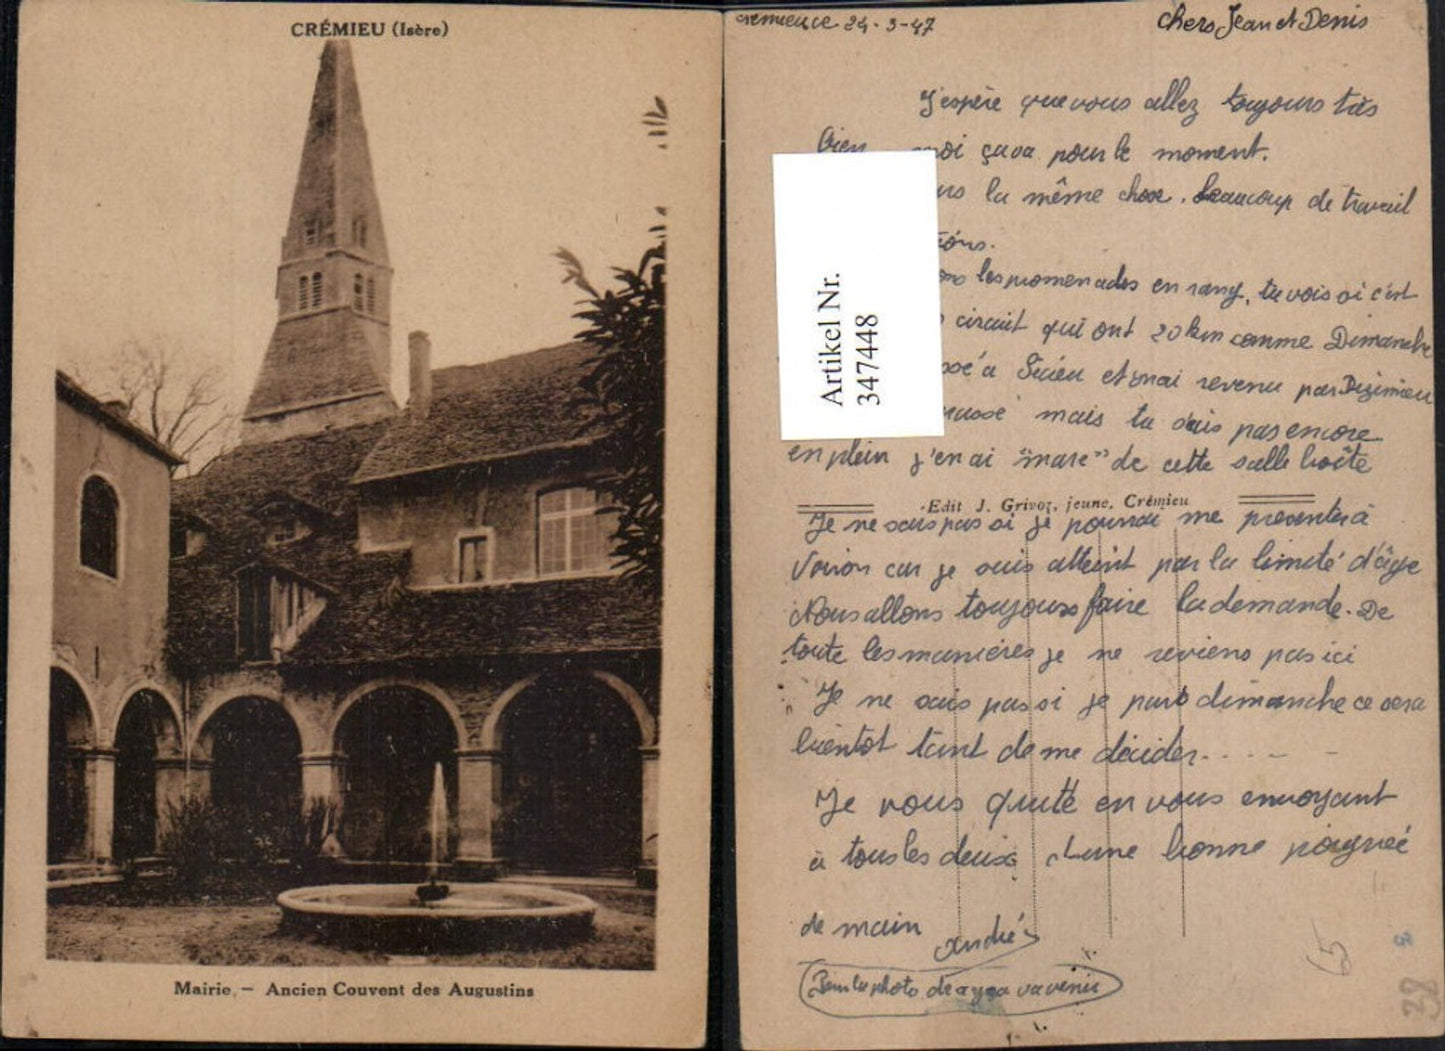 CRÉMIEU (Isère)
Mairie. — Ancien Couvent des Augustins
24-3-47
chers Jean et Denis
J'espère que vous allez toujours très
bien moi ça va pour le moment.
la même chose. beaucoup de travail
les promenades en rang, tu vois si c'est
circuit qui ont 20 km comme Dimanche
à Siccieu et vrai revenu par Dizimieu
mais tu sais pas encore
en plein j'en ai "mare" de cette salle boîte
Edit J. Grivoz, jeune, Crémieu
Je ne sais pas si je pourrai me presenter à
Voiron car je suis atteint par la limite d'âge
Nous allons toujours faire la demande. De
toute les manières je ne reviens pas ici
Je ne sais pas si je pars dimanche ce sera
bientôt tant de me décider.....
Je vous quitte en vous envoyant
à tous les deux une bonne poignée
de main
André
Pour la photo va venir
Artikel Nr.
347448
65
38